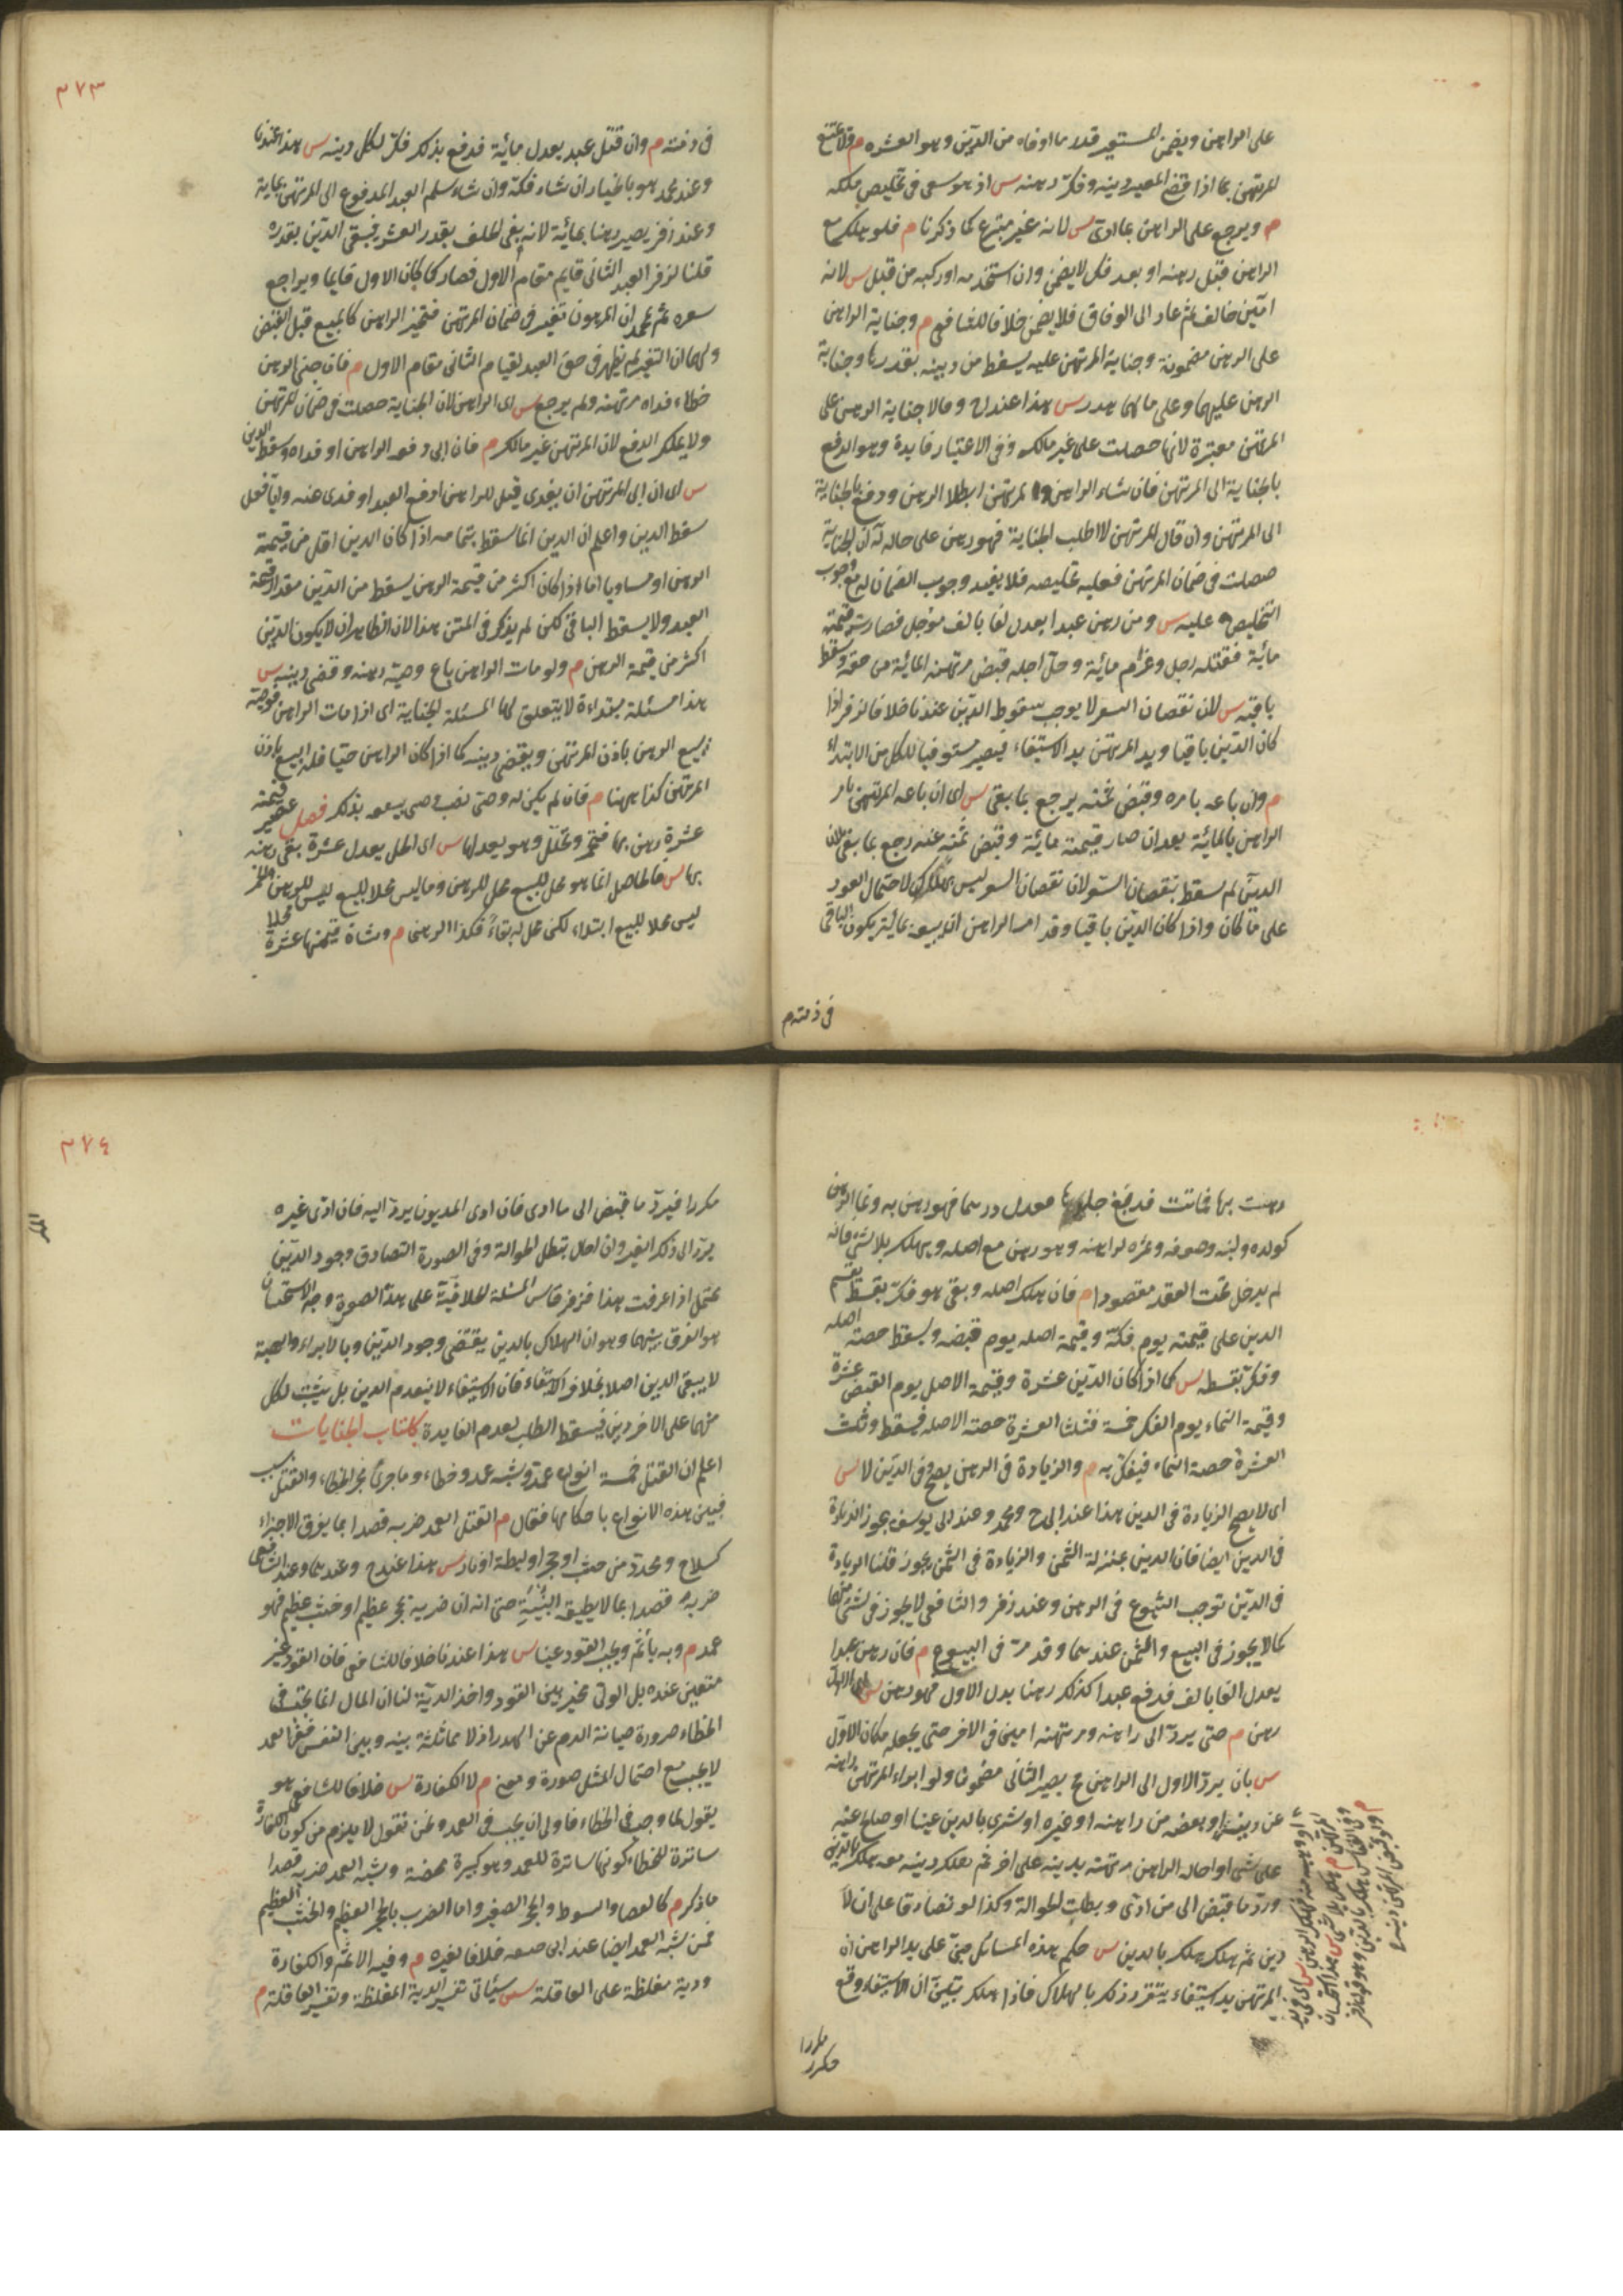 على الراهن ويضمن المستعير قدر ما اوفاه من الدين وهو العشره م ولا يمتنع
المرتهن بما اذا قضى المعير دينه وفك رهنه س اذ هو سعى في تخليص ملكه
م ويرجع على الراهن بما ادى س لانه غير متبرع كما ذكرنا م فلو هلك مع
الراهن قبل رهنه او بعد فكه لا يضمن وان استخدمه او ركبه من قبل س لانه
امين خالف ثم عاد الى الوفاق فلا يضمن خلافا للشافعي م وجناية الراهن
على الرهن مضمونة وجناية المرتهن عليه يسقط من دينه بقدرها وجناية
الرهن عليهما وعلى مالهما هدر س هذا عند ح وقالا جناية الرهن على
المرتهن معتبرة لانها حصلت على غير مالكه وفي الاعتبار فايدة وهو الدفع
بالجناية الى المرتهن فان شاء الراهن والمرتهن ابطلا الرهن ودفع بالجناية
الى المرتهن وان قال المرتهن لا اطلب الجناية فهو رهن على حاله له ان الجناية
حصلت في ضمان المرتهن فعليه تخليصه فلا يفيد وجوب الضمان له مع وجوب
التخليص عليه س ومن رهن عبدا يعدل الفا بالف مؤجل فصارت قيمته
مائية فقتله رجل وغرم مائية وحل اجله قبض مرتهنه المائية من حقه وسقط
باقيه س لان نقصان السعر لا يوجب سقوط الدين عندنا خلافا لزفر اذا
كان الدين باقيا ويد المرتهن يد الاستيفاء فيصير مستوفيا للكل من الابتداء
م وان باعه بامره وقبض ثمنه يرجع بما بقى س اى ان باعه المرتهن بامر
الراهن بالمائية بعد ان صار قيمته مائية وقبض ثمنه عنه رجع بما بقى لان
الدين لم سقط بنقصان السعر لان نقصان السعر ليس بهلاك لاحتمال العود
على ما كان واذا كان الدين باقيا وقد امر الراهن ان يبيعه بمائية يكون الباقي
في ذمته م
٣٧٣
في ذمته م وان قتل عبد يعدل مائية فدفع بذلك فك بكل دينه س هذا عندنا
وعند محمد هو بالخيار ان شاء فكه وان شاء سلم العبد المدفوع الى المرتهن بماية
وعند زفر يصير رهنا بمائية لانه بقى الخلف بقدر العشر فيبقى الدين بقدره
قلنا لزفر العبد الثاني قايم مقام الاول فصار كما كان الاول قايما ويراجع
سعره ثم لمحمد ان المرهون تغير في ضمان المرتهن فتخير الراهن كالمبيع قبل القبض
ولهما ان التغير لم يظهر في حق العبد لقيام الثاني مقام الاول م فان جنى الرهن
خطاء فداه مرتهنه ولم يرجع س اى الراهن لان الجناية حصلت في ضمان المرتهن
ولا يملك الدفع لان المرتهن غير مالك م فان ابى دفعه الراهن او فداه وسقط الدين
س اى ان ابى المرتهن ان يفدى قيل للراهن ادفع العبد او فدى عنه وايا فعل
سقط الدين واعلم ان الدين انما سقط بتمامه اذا كان الدين اقل من قيمة
الرهن او مساويا اما اذا كان اكثر من قيمة الرهن يسقط من الدين مقدار قيمة
العبد ولا يسقط الباقي لكن لم يذكر في المتن هذا لان الظاهر ان لا يكون الدين
اكثر من قيمة الرهن م ولو مات الراهن باع وصيه رهنه وقضى دينه س
هذا مسئلة مبتداءة لا يتعلق لها المسئلة الجناية اى اذا مات الراهن فوصيه
يبيع الرهن باذن المرتهن ويقضى دينه كما اذا كان الراهن حيا فله البيع باذن
المرتهن كذا ههنا م فان لم يكن له وصى نصب وصى يبيعه بذلك فصل عصير قيمته
عشرة رهن بها فتخمر وتخلل وهو يعدلها س اى الخل يعدل عشرة بقى رهنه
بها س فالحاصل انما هو محل للبيع محل للرهن وما ليس محلا للبيع ليس للرهن والخمر
ليس محلا للبيع ابتداء لكن محل له بقاء فكذا الرهن م وشاة قيمتها عشرة محلا
رهنت بها فماتت فدبغ جلدها معدل درهما فهو رهن به ونما الرهن
كولده ولبنه وصوفه وثمره لراهنه وهو رهن مع اصله ويهلك بلا شيء فانه
لم يدخل تحت العقد مقصودا م فان هلك اصله وبقى هو فك بقسط يقسم
الدين على قيمته يوم فكه وقيمة اصله يوم قبضه ويسقط حصة اصله
وفك بقسطه س كما اذا كان الدين عشرة وقيمة الاصل يوم القبض عشرة
وقيمة النماء يوم الفك خمسة فثلثا العشرة حصة الاصل فيسقط وثلث
العشرة حصة النماء فيفك به م والزيادة في الرهن يصح وفي الدين لا س
اى لا يصح الزيادة في الدين هذا عند ابى ح ومحمد وعند ابى يوسف يجوز الزيادة
في الدين ايضا فان الدين بمنزلة الثمن والزيادة في الثمن يجوز قلنا الزيادة
في الدين توجب الشيوع في الرهن وعند زفر والشافعي لا يجوز في شيء منهما
كما لا يجوز في المبيع والثمن عندهما وقد مر في البيوع م فان رهن عبدا
يعدل الفا بالف فدفع عبدا كذلك رهنا بدل الاول فهو رهن س اى الاول
رهن م حتى يرد الى راهنه ومرتهنه امين في الاخر حتى يجعله مكان الاول
س بان يرد الاول الى الراهن ح يصير الثاني مضمونا ولو ابراء المرتهن راهنه
عن دينه او بعضه من راهنه او غيره او شرى بالدين عينا او صالح عنه
على شى او احاله الراهن مرتهنه بدينه على اخر ثم هلك رهنه معه هلك بالدين
ورد ما قبض الى من ادى وبطلت الحوالة وكذا لو تصادقا على ان لا
دين ثم هلك هلك بالدين س حكم هذه المسائل مبنى على يد الراهن ان
المرتهن يد استيفاء يتقرر ذلك بالهلاك فاذا هلك تبين ان الاستيفاء وقع
مكررا
مكرر
٣٧٤
مكررا فيرد ما قبض الى ما ادى فان ادى المديون يرد اليه فان ادى غيره
يرد الى ذلك الغير وان احال تبطل الحوالة وفى الصورة التصادق وجود الدين
محتمل اذا عرفت هذا فزفر قاس المسئلة الخلافية على هذا الصورة وجه الاستحسان
هو الفرق بينهما وهو ان الهلاك بالدين يقتضى وجود الدين وبالابراء والهبة
لا يبقى الدين اصلا بخلاف الاستيفاء فان الاستيفاء لا ينعدم الدين بل يثبت لكل
منهما على الاخر دين فيسقط الطلب لعدم الفايدة كتاب الجنايات
اعلم ان القتل خمسة انواع عمد وشبه عمد وخطاء وما جرى مجر الخطاء والقتل بسبب
فبين هذه الانواع باحكامها فقال م القتل العمد ضربه قصدا بما يفرق الاجزاء
كسلاح ومحدد من خشب او حجر او ليطة او نار س هذا عند ح وعندهما وعند الشافعي
ضربه قصدا بما لا يطيق البنية حتى انه ان ضربه بحجر عظيم او خشب عظيم فهو
عمد م وبه ياثم ويجب القود عينا س هذا عندنا خلافا للشافعي فان القود غير
متعين عنده بل الولى مخير بين القود واخذ الدية لنا ان المال انما يجب في
الخطاء ضرورة صيانة الدم عن الهدر اذ لا مماثلة بينه وبين النفس ففي العمد
لا يجب مع احتمال المثل صورة ومعنى م لا الكفارة س خلافا للشافعي هو
يقول لما وجب في الخطاء فاولى ان يجب في العمد ونحن نقول لا يلزم من كون الكفارة
ساترة للخطاء كونها ساترة للعمد وهو كبيرة محضة وشبه العمد ضربه قصدا
ما ذكر م كالعصا والسوط والحجر الصغير واما الضرب بالحجر العظيم والخشب العظيم
فمن شبه العمد ايضا عند ابى حنيفه خلافا لغيره م وفيه الاثم والكفارة
ودية مغلظة على العاقلة س سيأتي تفسير الدية المغلظة وتفسير العاقلة م